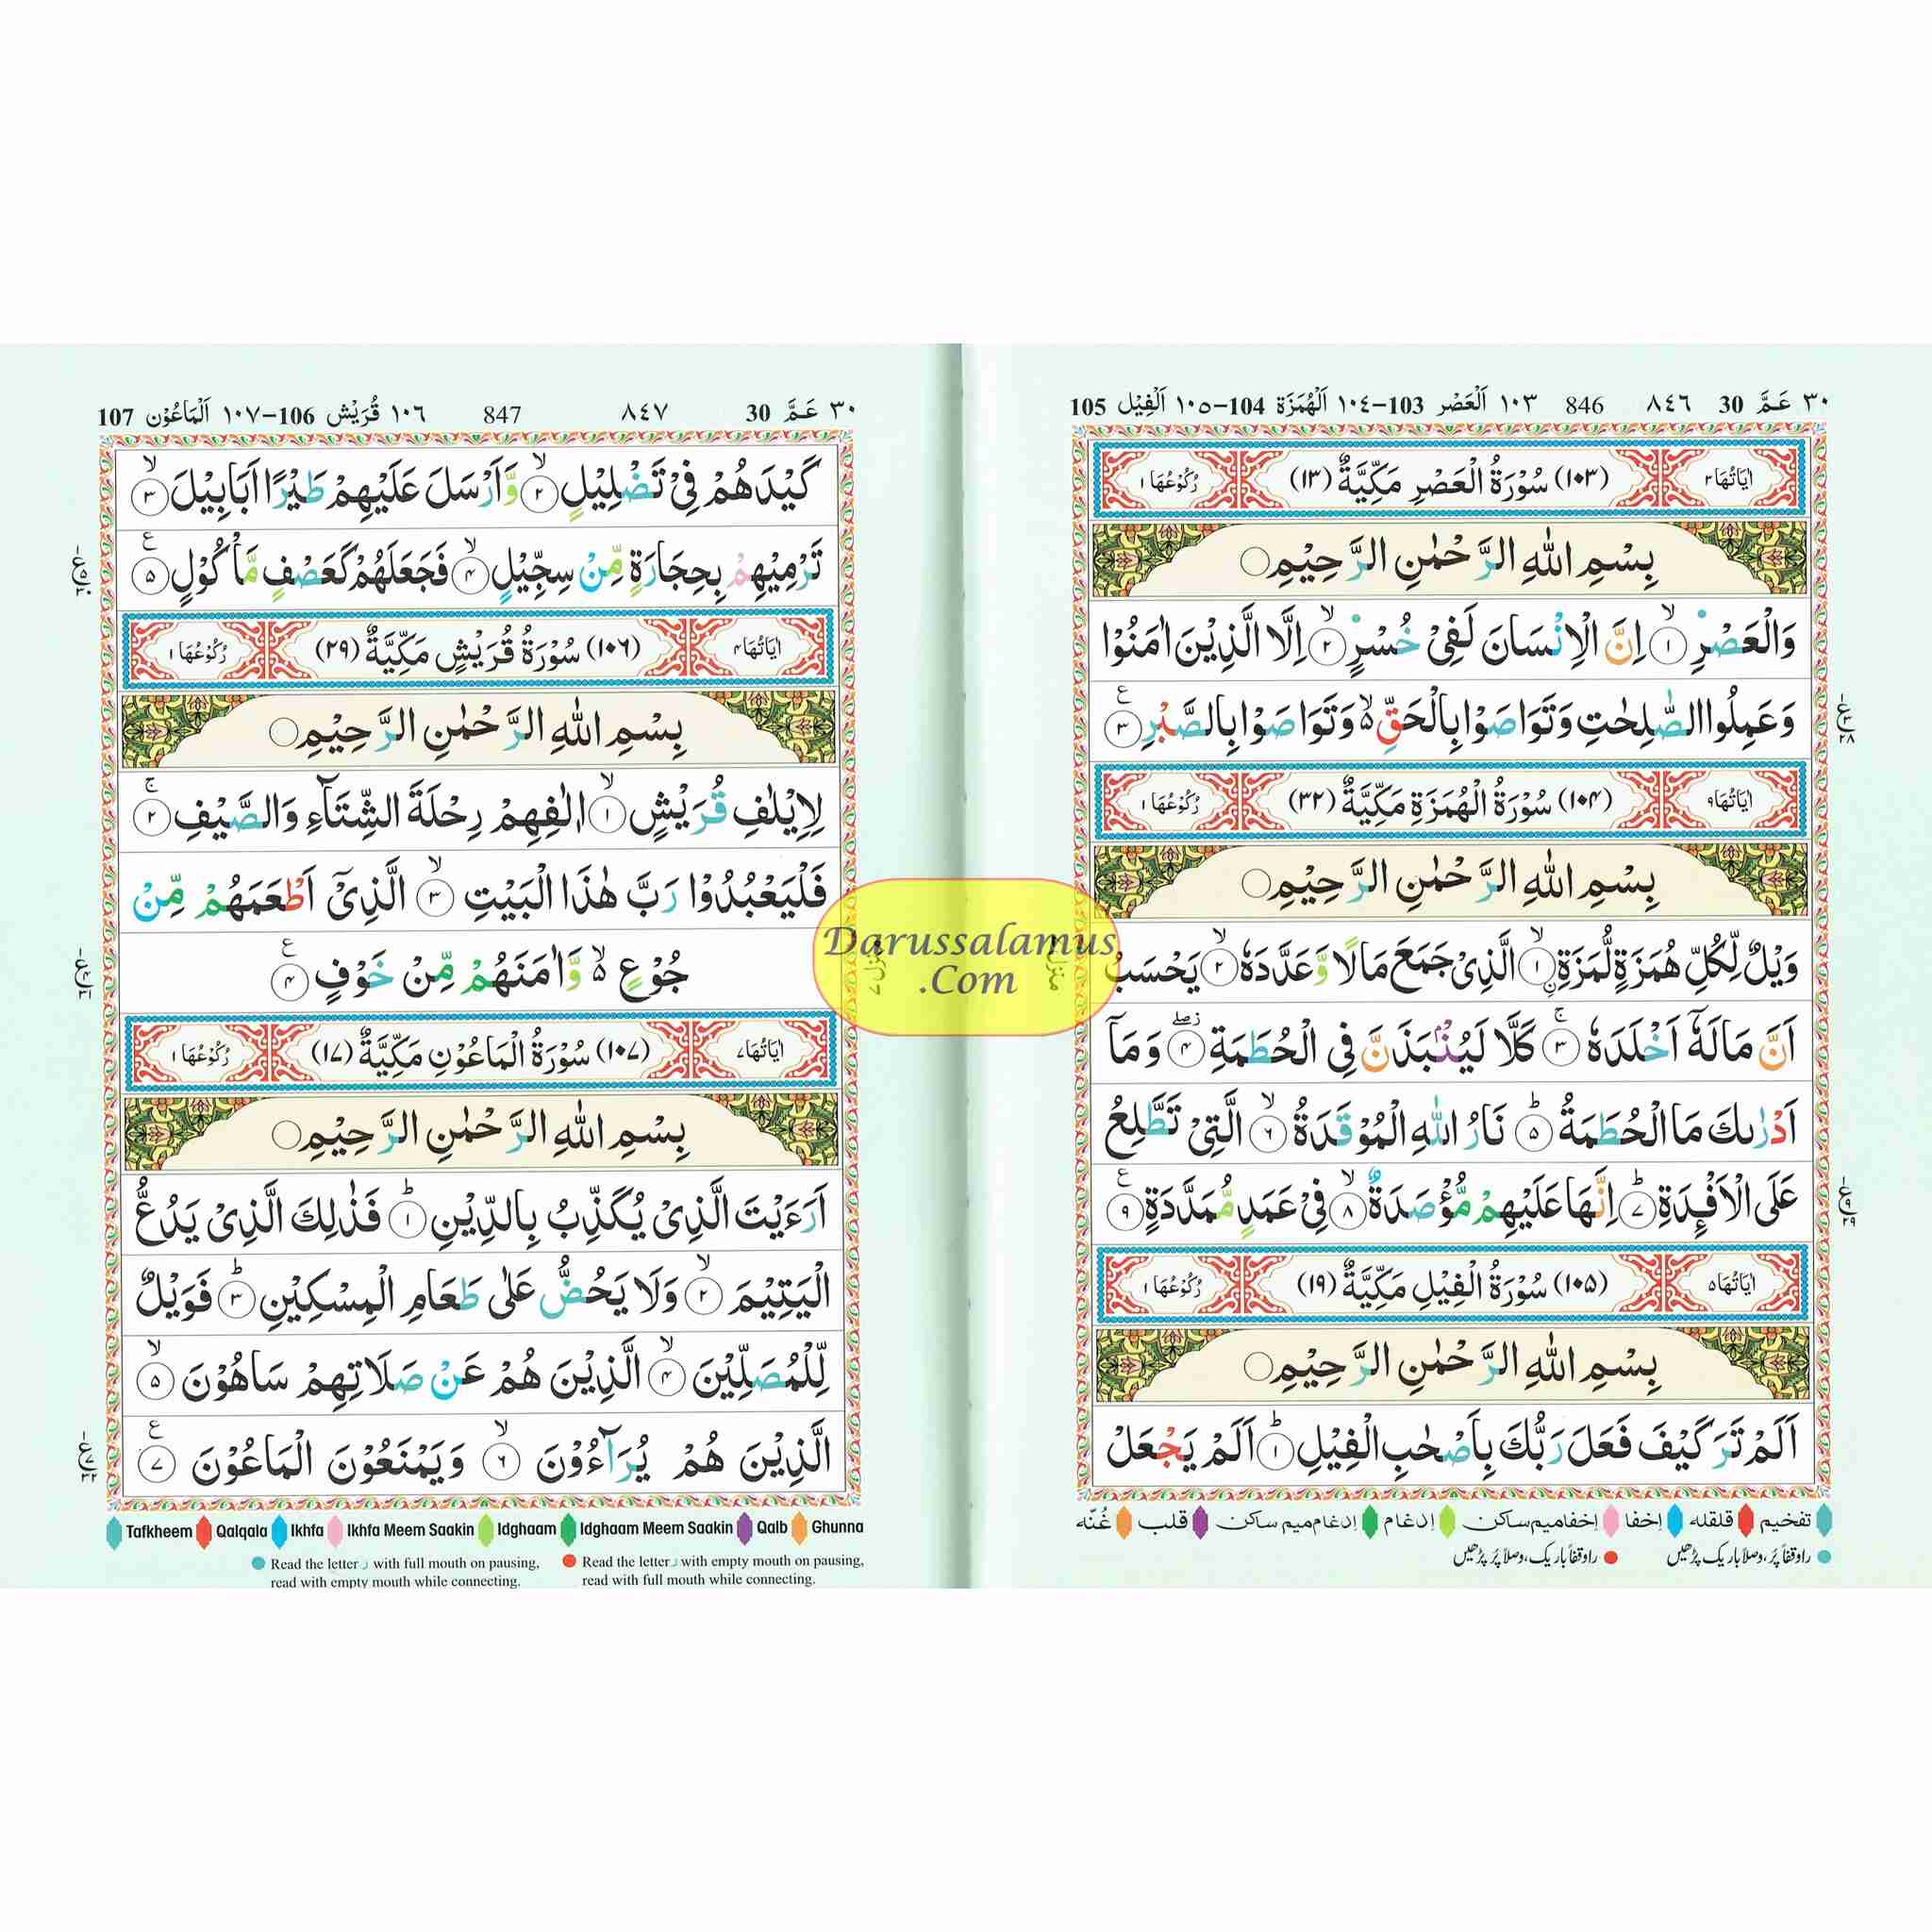 ٣٠ عَمَّ 30 ٨٤٦ 846 ١٠٣ اَلْعَصْر 103–١٠٤ اَلْهُمَزَة 104–١٠٥ اَلْفِيْل 105
اٰيَاتُهَا ٣ (١٠٣) سُوْرَةُ الْعَصْرِ مَكِّيَّةٌ (١٣) رُكُوْعُهَا ١
بِسْمِ اللّٰهِ الرَّحْمٰنِ الرَّحِيْمِ
وَالْعَصْرِ ۙ ١ اِنَّ الْاِنْسَانَ لَفِىْ خُسْرٍ ۙ ٢ اِلَّا الَّذِيْنَ اٰمَنُوْا
وَعَمِلُوا الصّٰلِحٰتِ وَتَوَاصَوْا بِالْحَقِّ ۙ وَتَوَاصَوْا بِالصَّبْرِ ٣
اٰيَاتُهَا ٩ (١٠٤) سُوْرَةُ الْهُمَزَةِ مَكِّيَّةٌ (٣٢) رُكُوْعُهَا ١
بِسْمِ اللّٰهِ الرَّحْمٰنِ الرَّحِيْمِ
وَيْلٌ لِّكُلِّ هُمَزَةٍ لُّمَزَةِ ۙ ١ الَّذِىْ جَمَعَ مَالًا وَّعَدَّدَهٗ ۙ ٢ يَحْسَبُ
اَنَّ مَالَهٗٓ اَخْلَدَهٗ ۚ ٣ كَلَّا لَيُنْۢبَذَنَّ فِى الْحُطَمَةِ ٤ وَمَآ
اَدْرٰىكَ مَا الْحُطَمَةُ ؕ ٥ نَارُ اللّٰهِ الْمُوْقَدَةُ ۙ ٦ الَّتِىْ تَطَّلِعُ
عَلَى الْاَفْئِدَةِ ؕ ٧ اِنَّهَا عَلَيْهِمْ مُّؤْصَدَةٌ ۙ ٨ فِىْ عَمَدٍ مُّمَدَّدَةٍ ٩
اٰيَاتُهَا ٥ (١٠٥) سُوْرَةُ الْفِيْلِ مَكِّيَّةٌ (١٩) رُكُوْعُهَا ١
بِسْمِ اللّٰهِ الرَّحْمٰنِ الرَّحِيْمِ
اَلَمْ تَرَ كَيْفَ فَعَلَ رَبُّكَ بِاَصْحٰبِ الْفِيْلِ ؕ ١ اَلَمْ يَجْعَلْ
تفخیم قلقله اِخفا اِخفامیم‌ساکن اِدغام اِدغام‌میم ساکن قلب غُنّه
را وقفاً پُر، وصلاً باریک پڑھیں را وقفاً باریک، وصلاً پُر پڑھیں
٣٠ عَمَّ 30 ٨٤٧ 847 ١٠٦ قُرَيْش 106–١٠٧ اَلْمَاعُوْن 107
كَيْدَهُمْ فِىْ تَضْلِيْلٍ ۙ ٢ وَّاَرْسَلَ عَلَيْهِمْ طَيْرًا اَبَابِيْلَ ۙ ٣
تَرْمِيْهِمْ بِحِجَارَةٍ مِّنْ سِجِّيْلٍ ۙ ٤ فَجَعَلَهُمْ كَعَصْفٍ مَّاْكُوْلٍ ٥
اٰيَاتُهَا ٤ (١٠٦) سُوْرَةُ قُرَيْشٍ مَكِّيَّةٌ (٢٩) رُكُوْعُهَا ١
بِسْمِ اللّٰهِ الرَّحْمٰنِ الرَّحِيْمِ
لِاِيْلٰفِ قُرَيْشٍ ۙ ١ اٖلٰفِهِمْ رِحْلَةَ الشِّتَآءِ وَالصَّيْفِ ۚ ٢
فَلْيَعْبُدُوْا رَبَّ هٰذَا الْبَيْتِ ۙ ٣ الَّذِىْٓ اَطْعَمَهُمْ مِّنْ
جُوْعٍ ۙ وَّاٰمَنَهُمْ مِّنْ خَوْفٍ ٤
اٰيَاتُهَا ٧ (١٠٧) سُوْرَةُ الْمَاعُوْنِ مَكِّيَّةٌ (١٧) رُكُوْعُهَا ١
بِسْمِ اللّٰهِ الرَّحْمٰنِ الرَّحِيْمِ
اَرَءَيْتَ الَّذِىْ يُكَذِّبُ بِالدِّيْنِ ؕ ١ فَذٰلِكَ الَّذِىْ يَدُعُّ
الْيَتِيْمَ ۙ ٢ وَلَا يَحُضُّ عَلٰى طَعَامِ الْمِسْكِيْنِ ؕ ٣ فَوَيْلٌ
لِّلْمُصَلِّيْنَ ۙ ٤ الَّذِيْنَ هُمْ عَنْ صَلَاتِهِمْ سَاهُوْنَ ۙ ٥
الَّذِيْنَ هُمْ يُرَآءُوْنَ ۙ ٦ وَيَمْنَعُوْنَ الْمَاعُوْنَ ٧
Tafkheem Qalqala Ikhfa Ikhfa Meem Saakin Idghaam Idghaam Meem Saakin Qalb Ghunna
Read the letter ر with full mouth on pausing, read with empty mouth while connecting.
Read the letter ر with empty mouth on pausing, read with full mouth while connecting.
Darussalamus
.Com